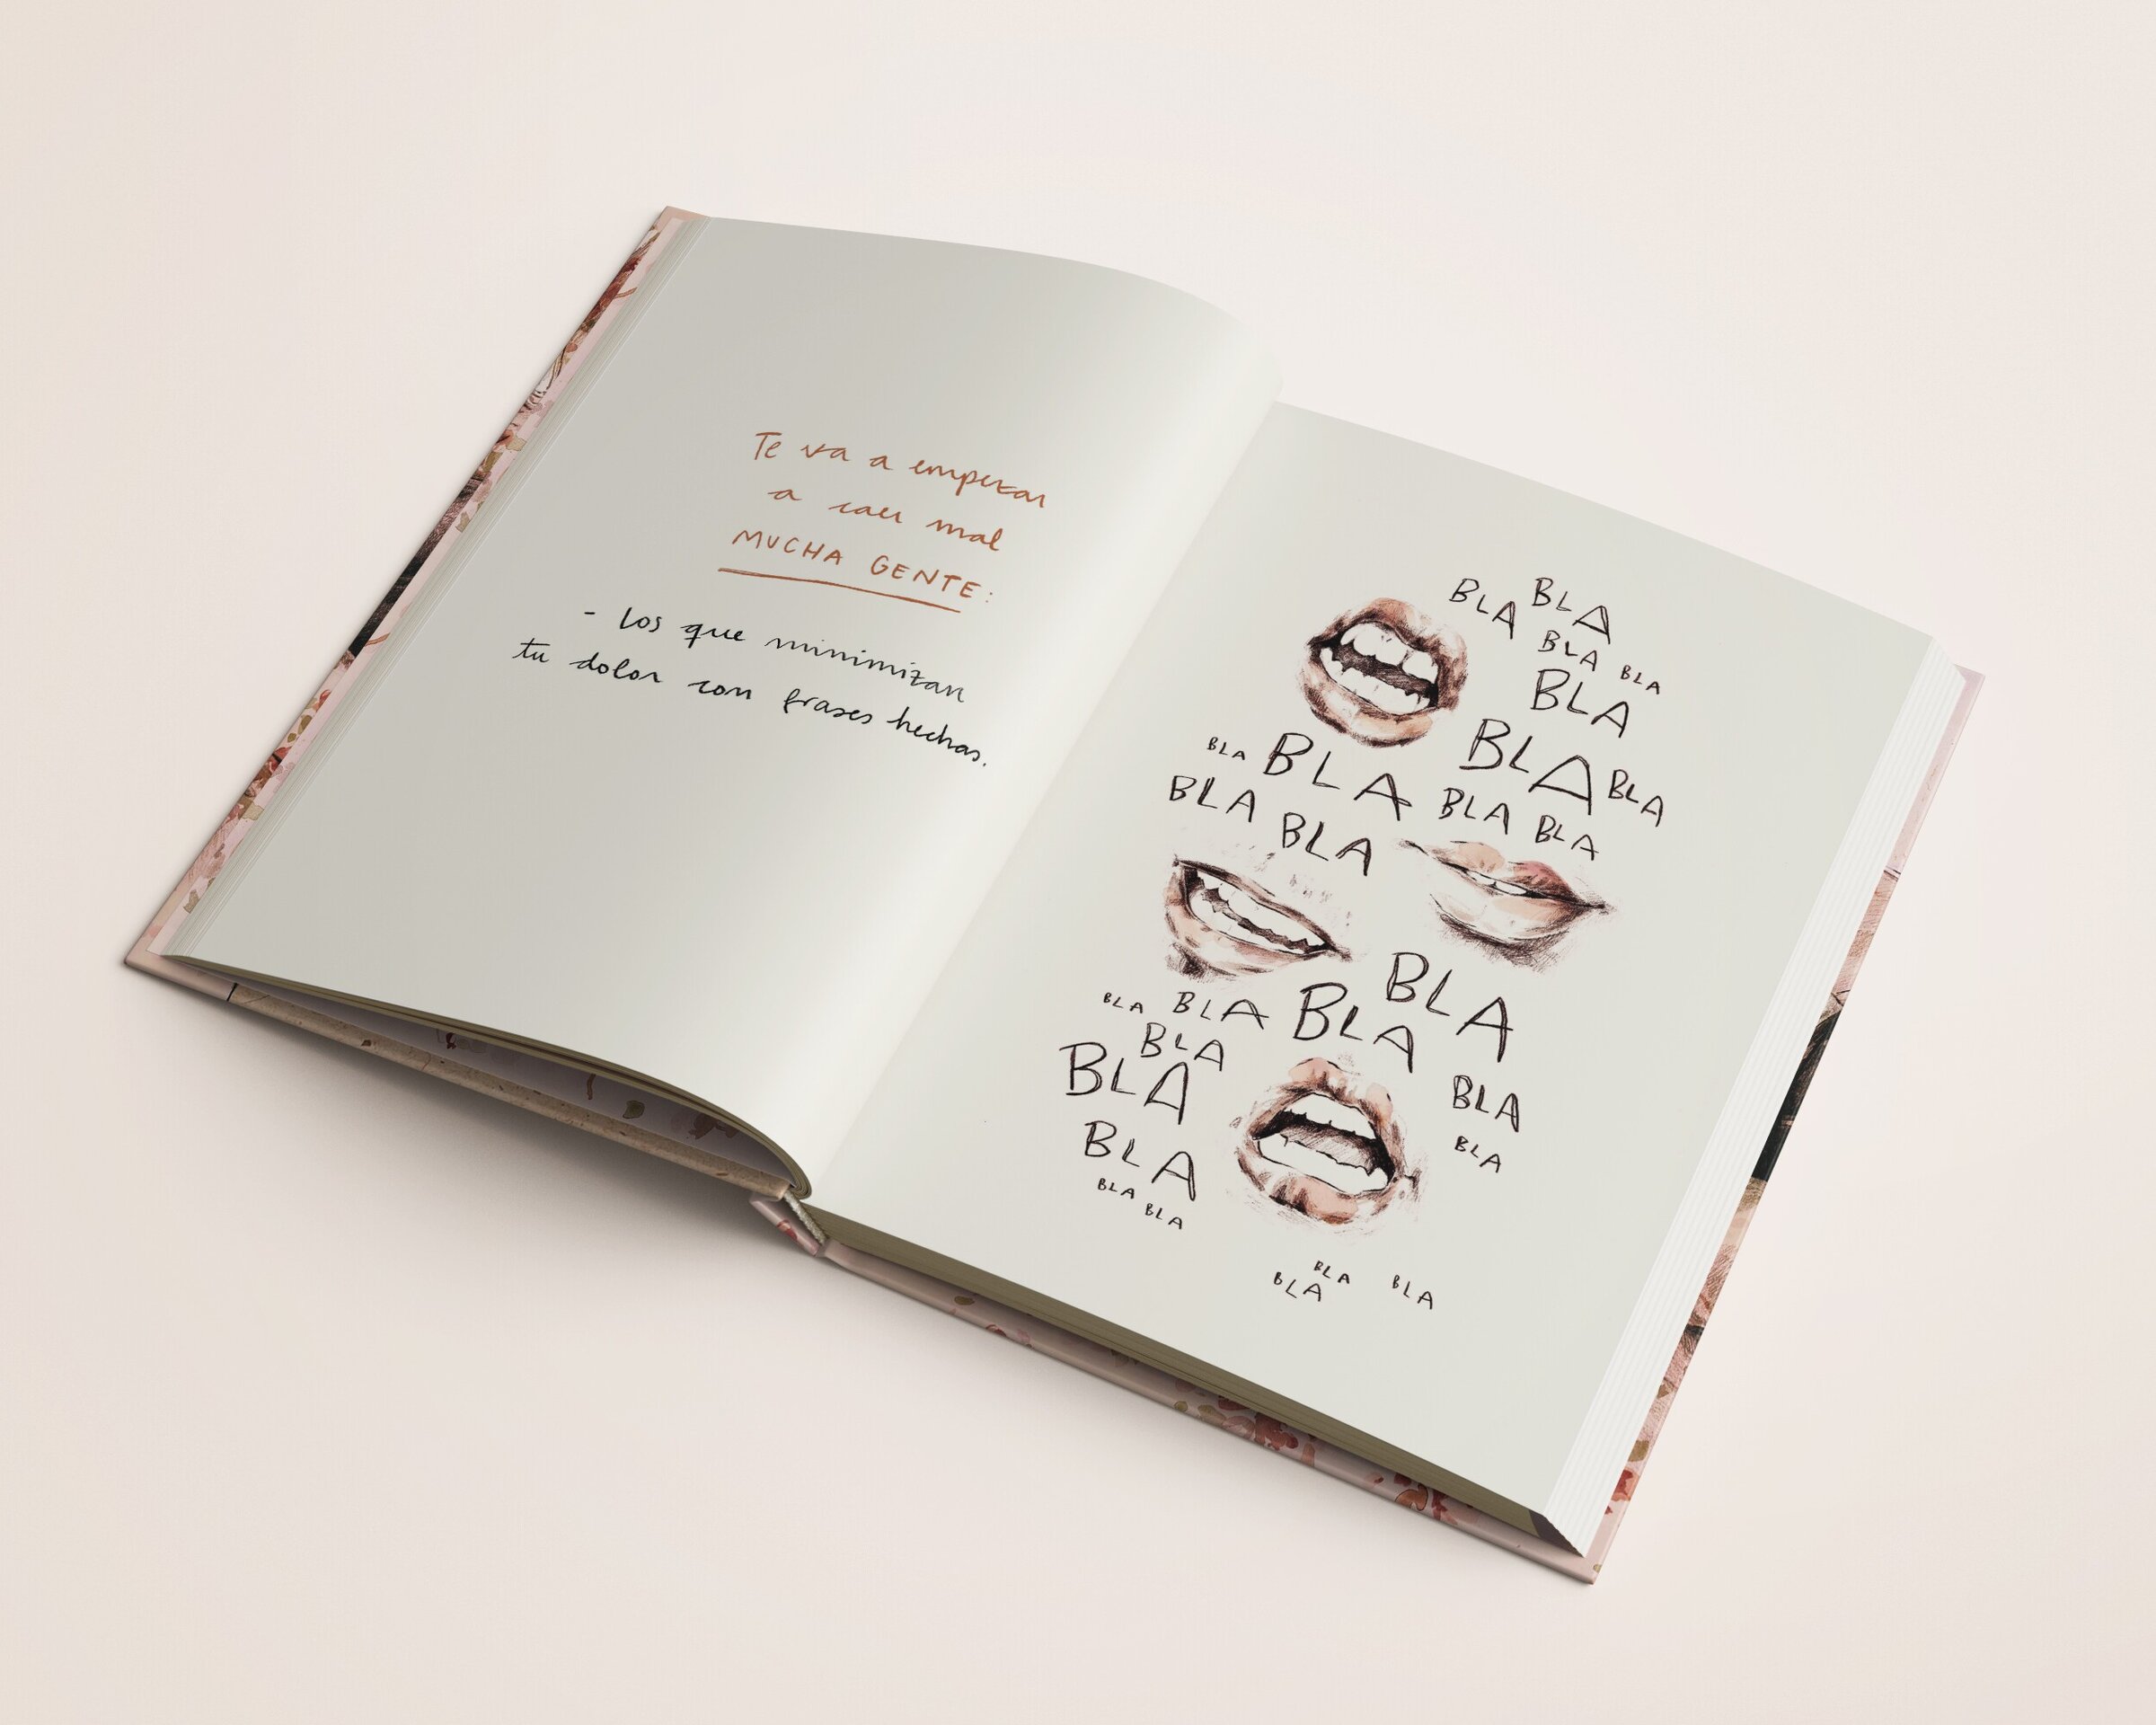 Te va a empezar
a caer mal
MUCHA GENTE:
- Los que minimizan
tu dolor con frases hechas.
BLA BLA
BLA BLA
BLA
BLA BLA
BLA BLA BLA BLA
BLA BLA
BLA
BLA BLA BLA
BLA
BLA
BLA
BLA
BLA
BLA BLA
BLA BLA
BLA